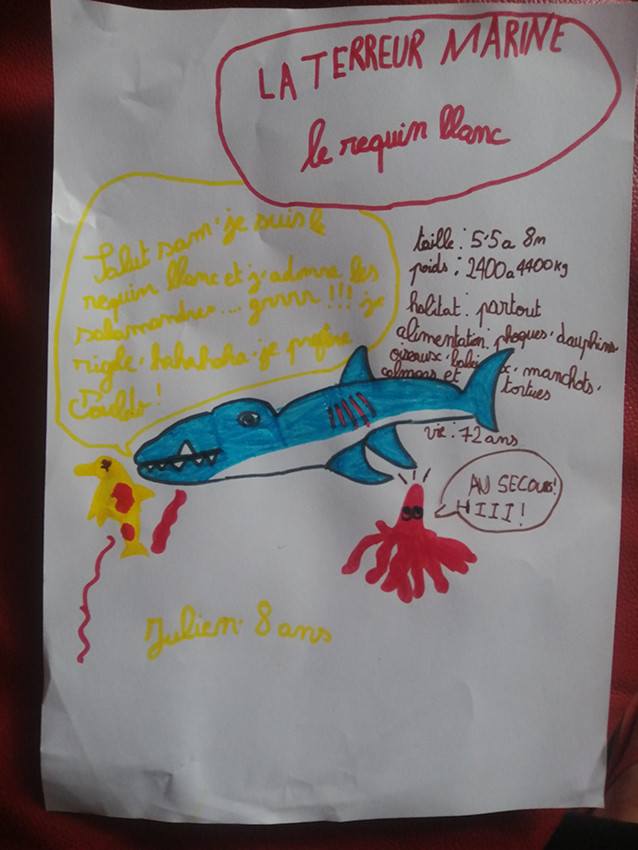 LA TERREUR MARINE
le requin blanc
Salut sam' je suis le
requin blanc et j'adore les
salamandres.... grrrr !!! je
rigole. hahahaha. je préfère
taille : 5,5 a 8m
poids : 2400 a 4400 kg
habitat : partout
alimentation. phoques, dauphins
oiseaux, manchots,
calmars et tortues
vie : 72 ans
AU SECOURS!
HIII!
Julien. 8 ans